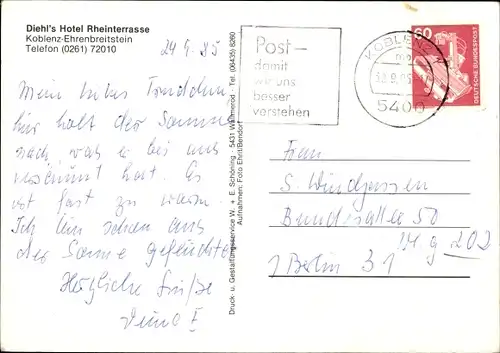 Diehl's Hotel Rheinterrasse
Koblenz-Ehrenbreitstein
Telefon (0261) 72010
Mein
hier holt der Sommer
nach, was er bei uns
versäumt hat. Es
ist fast zu warm.
Ich bin schon aus
der Sonne geflüchtet
Herzliche Grüße
Druck- u. Gestaltungsservice W. + E. Schöning · 5431 Wallmerod · Tel. (06435) 8260
Aufnahmen: Foto Ehrit/Bendorf
Post –
damit
wir uns
besser
verstehen
KOBLENZ
5400
60
DEUTSCHE BUNDESPOST
Frau
S. Windgassen
Bundesallee 50
202
1 Berlin 31